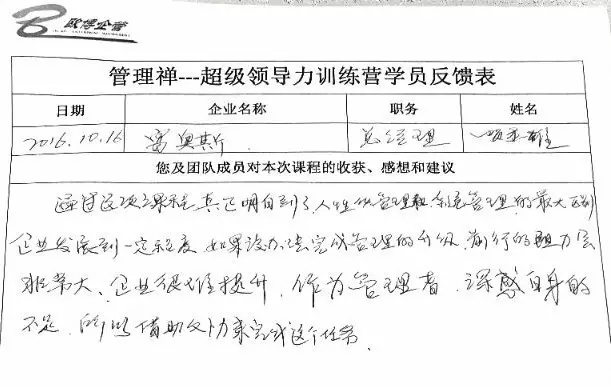 欧博企管
管理禅---超级领导力训练营学员反馈表
日期 企业名称 职务 姓名
2016.10.16 奥斯 总经理 雄
您及团队成员对本次课程的收获、感想和建议
通过这项课程真正明白到了,人性化管理和制度管理的最大区别
企业发展到一定程度,如果没办法完成管理的升级,前行的阻力会
非常大、企业很难提升,作为管理者,深感自身的
不足,所以借助外力来完成这个任务.